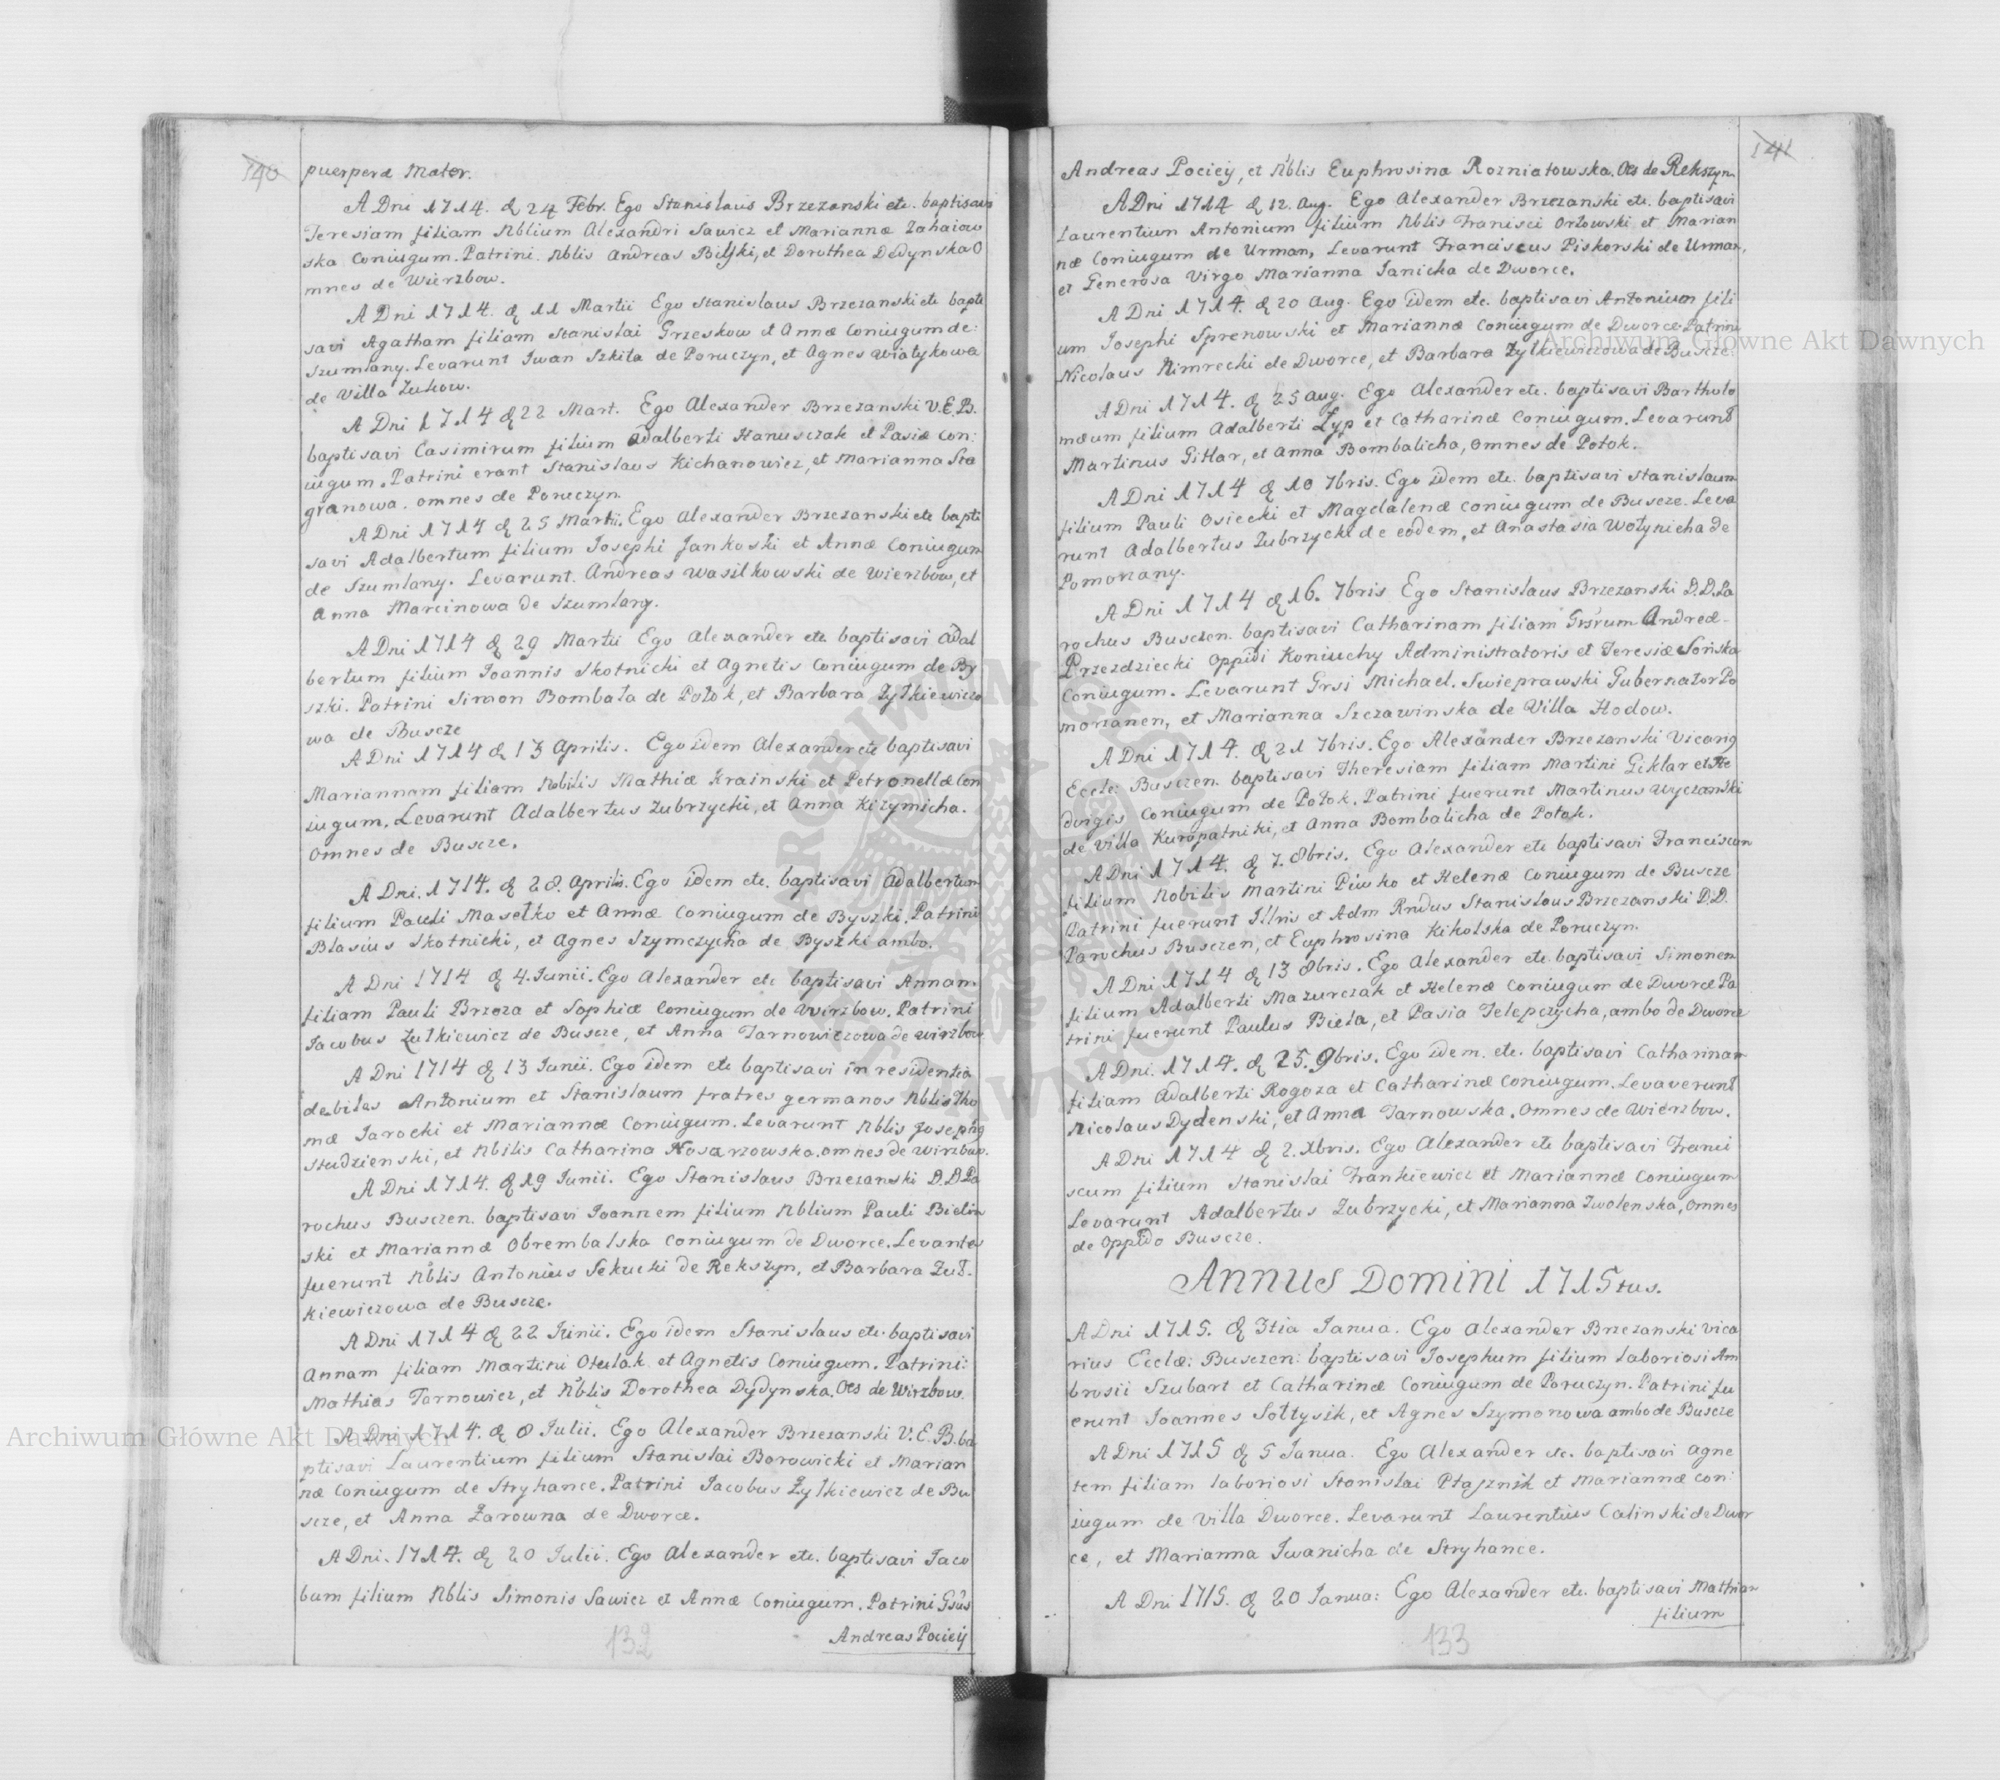 140
puerpera Mater.
A Dni 1714. d 24 Febr. Ego Stanislaus Brzezanski etc. baptisavi
Teresiam filiam Nblium Alexandri Sawicz et Mariannæ Zahaiow
ska Coniugum. Patrini. Nblis Andreas Bilski, et Dorothea Dedynska O
mnes de Wierzbow.
A Dni 1714. d 11 Martii Ego Stanislaus Brzezanski etc bapti
savi Agatham filiam Stanislai Grzeskow et Annæ Coniugum de:
Szumlany. Levarunt Iwan Szkita de Poruczyn, et Agnes Wiatykowa
de Villa Zukow.
A Dni 1714 d 22 Mart. Ego Alexander Brzezanski V.E.B.
baptisavi Casimirum filium Adalberti Hanusczak et Pasiæ Con:
iugum. Patrini erant Stanislaus Kichanowicz, et Marianna Sta
granowa. omnes de Poruczyn.
A Dni 1714 d 25 Martii. Ego Alexander Brzezanski etc bapti
savi Adalbertum filium Josephi Jankoski et Annæ Coniugum
de Szumlany. Levarunt. Andreas Wasilkowski de Wierzbow, et
Anna Marcinowa de Szumlany.
A Dni 1714 d 29 Martii Ego Alexander etc baptisavi Adal
bertum filium Joannis Skotnicki et Agnetis Coniugum de By
szki. Patrini Simon Bombała de Potok, et Barbara Zyłkiewiczo
wa de Buscze
A Dni 1714 d 13 Aprilis. Ego idem Alexander etc baptisavi
Mariannam filiam Nobilis Mathiæ Krainski et Petronellæ Con
iugum. Levarunt Adalbertus Zubrzycki, et Anna Kizymicha.
Omnes de Buscze.
A Dni. 1714. d 28. Aprilis. Ego idem etc. baptisavi Adalbertum
filium Pauli Masełko et Annæ Coniugum de Byszki. Patrini
Blasius Skotnicki, et Agnes Szymczycha de Byszki ambo.
A Dni 1714 d 4. Junii. Ego Alexander etc baptisavi Annam
filiam Pauli Brzoza et Sophiæ Coniugum de Wirzbow. Patrini
Jacobus Zułkiewicz de Buscze, et Anna Tarnowiczowa de Wirzbow
A Dni 1714 d 13 Junii. Ego idem etc baptisavi in residentia
debiles Antonium et Stanislaum fratres germanos Nblis Tho
mæ Jarocki et Mariannæ Coniugum. Levarunt Nblis Josephg
Studzienski, et Nbilis Catharina Nosarzowska. omnes de Wirzbow.
A Dni 1714. d 19 Junii. Ego Stanislaus Brzezanski D.D. Pa
rochus Busczen. baptisavi Joannem filium Nblium Pauli Bielin
ski et Mariannæ Obrembalska Coniugum de Dworce. Levantes
fuerunt Nblis Antonius Sekucki de Rekszyn, et Barbara Zuł-
kiewiczowa de Buscze.
A Dni 1714 d 22 Junii. Ego idem Stanislaus etc. baptisavi
Annam filiam Martini Otulak et Agnetis Coniugum. Patrini:
Mathias Tarnowicz, et Nblis Dorothea Dydynska. Oes de Wirzbow.
A Dni 1714. d 8 Julii. Ego Alexander Brzezanski V.E.B. ba
ptisavi Laurentium filium Stanislai Borowicki et Marian
næ Coniugum de Stryhance. Patrini Jacobus Zylkiewicz de Bu
scze, et Anna Zarowna de Dworce.
A Dni. 1714. d 20 Julii. Ego Alexander etc. baptisavi Jaco
bum filium Nblis Simonis Sawicz et Annæ Coniugum. Patrini Gsus
Andreas Pociey
132
141
Andreas Pociey, et Nblis Euphrosina Rozniatowska. Oes de Rekszyn
A Dni 1714 d 12. Aug. Ego Alexander Brzezanski etc. baptisavi
Laurentium Antonium filium Nblis Franisci Orłowski et Marian
næ Coniugum de Urman, Levarunt Franciscus Piskorski de Urman,
et Generosa Virgo Marianna Janicka de Dworce.
A Dni 1714. d 20 Aug. Ego idem etc. baptisavi Antonium fili
um Josephi Sprenowski et Mariannæ Coniugum de Dworce. Patrini
Nicolaus Nimrecki de Dworce, et Barbara Zylkiewiczowa de Buscze.
A Dni 1714. d 25 Aug. Ego Alexander etc. baptisavi Bartholo
mæum filium Adalberti Zyp et Catharinæ Coniugum. Levarunt
Martinus Gitlar, et Anna Bombalicha, omnes de Potok.
A Dni 1714 d 10 7bris. Ego idem etc. baptisavi Stanislaum
filium Pauli Osiecki et Magdalenæ Coniugum de Buscze. Leva
runt Adalbertus Zubrzycki de eodem, et Anastasia Wołynicha de
Pomorzany.
A Dni 1714 d 16. 7bris Ego Stanislaus Brzezanski D.D. Pa
rochus Busczen. baptisavi Catharinam filiam Grsrum Andreæ
Przezdziecki Oppidi Koniuchy Administratoris et Teresiæ Sońska
Coniugum. Levarunt Grsi Michael. Swieprawski Gubernator Po
morzanen, et Marianna Szczawinska de Villa Hodow.
A Dni 1714. d 21 7bris. Ego Alexander Brzezanski Vicarig
Eccle: Busczen. baptisavi Theresiam filiam Martini Giklar et He
dvigis Coniugum de Potok. Patrini fuerunt Martinus Wyczanski
de villa Kuropatniki, et Anna Bombalicha de Potok.
A Dni 1714. d 7. 8bris. Ego Alexander etc baptisavi Franciscum
filium Nobilis Martini Piwko et Helenæ Coniugum de Buscze
Patrini fuerunt Illris et Adm Rndus Stanislaus Brzezanski D.D.
Parochus Busczen, et Euphrosina Kikolska de Poruczyn.
A Dni 1714 d 13 8bris. Ego Alexander etc. baptisavi Simonem
filium Adalberti Mazurczak et Helenæ Coniugum de Dworce Pa
trini fuerunt Paulus Bieła, et Pasia Telepczycha, ambo de Dworce
A Dni. 1714. d 25. 9bris. Ego idem. etc. baptisavi Catharinam
filiam Adalberti Rogoza et Catharinæ Coniugum. Levaverunt
Nicolaus Dydenski, et Anna Tarnowska. Omnes de Wierzbow.
A Dni 1714 d 2. Xbris. Ego Alexander etc baptisavi Franci
scum filium Stanislai Frankiewicz et Mariannæ Coniugum
Levarunt Adalbertus Zubrzycki, et Marianna Zwolenska, Omnes
de Oppido Buscze.
Annus Domini 1715tus.
A Dni 1715. d 3tia Janua. Ego Alexander Brzezanski Vica
rius Ecclæ: Busczen: baptisavi Josephum filium laboriosi Am
brosii Szubart et Catharinæ Coniugum de Poruczyn. Patrini fu
erunt Joannes Sołtysik, et Agnes Szymonowa ambo de Buscze
A Dni 1715 d 5 Janua. Ego Alexander etc. baptisavi Agne
tem filiam laboriosi Stanislai Ptasznik et Mariannæ Con:
iugum de Villa Dworce. Levarunt Laurentius Calinski de Dwor
ce, et Marianna Iwanicha de Stryhance.
A Dni 1715. d 20 Janua: Ego Alexander etc. baptisavi Mathiam
filium
133
Archiwum Główne Akt Dawnych
Archiwum Główne Akt Dawnych
ARCHIWUM GŁÓWNE AKT DAWNYCH